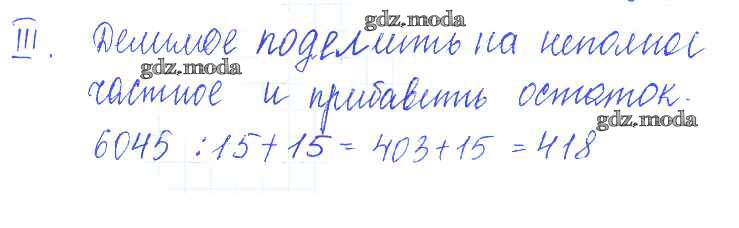 gdz.moda
III. Делимое поделить на неполное
gdz.moda
частное и прибавить остаток.
gdz.moda
6045 : 15 + 15 = 403 + 15 = 418